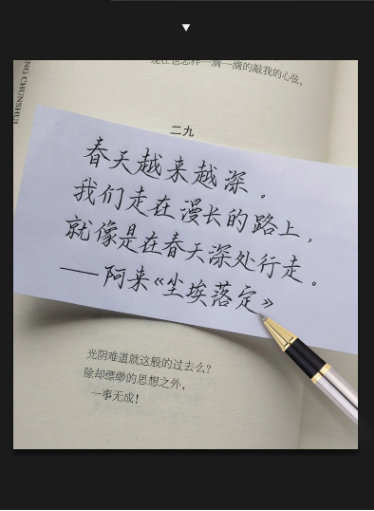 现在也怎样一滴一滴的敲我的心弦。
NG CHUNSHUI
二九
春天越来越深。
我们走在漫长的路上,
就像是在春天深处行走。
——阿来《尘埃落定》
光阴难道就这般的过去么?
除却缥缈的思想之外,
一事无成!